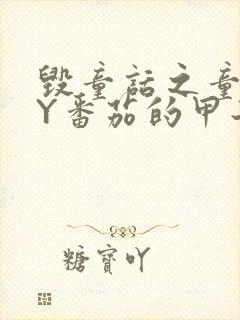 毁童话之童
Y番茄的甲
糖寶吖